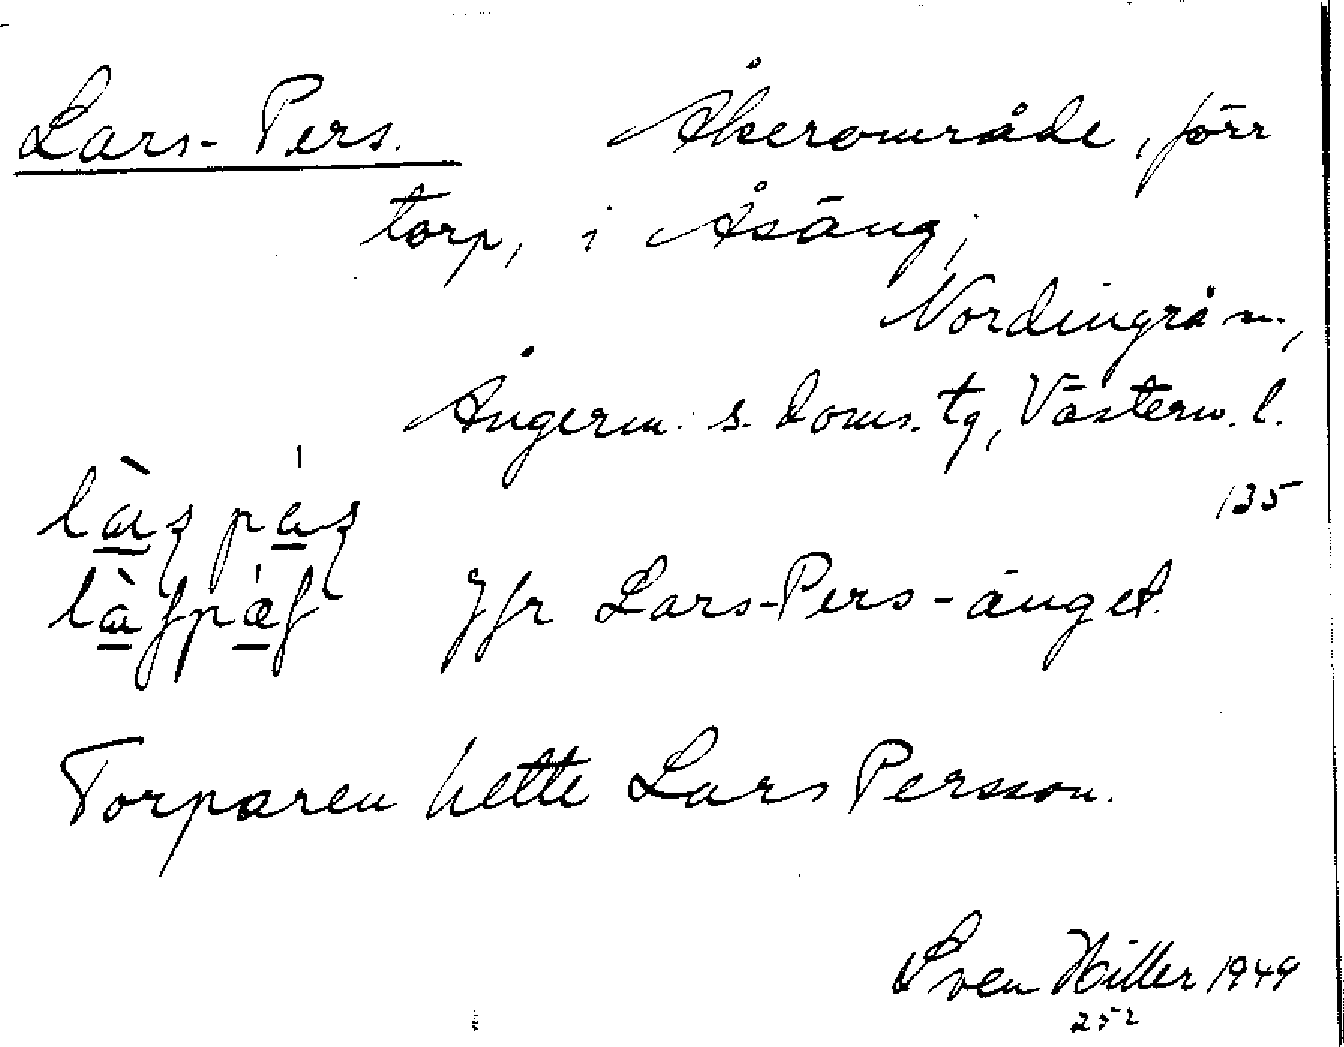 Lars-Pers. Åkerområde, förr
torp, i Åsäng,
Nordingrå sn,
Ångerm. s. doms. tg, Västern. l.
135
Jfr Lars-Pers-änget.
Torparen hette Lars Persson.
Sven Hiller 1949
252